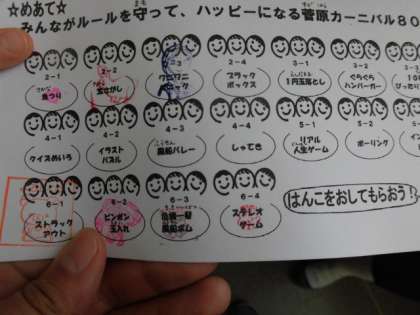 ☆めあて☆
みんながルールを守って、ハッピーになる菅原カーニバル80
2-1 2-2 2-3 2-4 3-1 3-2
魚つり 宝さがし ワニワニ パニック ブラック ボックス 1円玉落とし ぐらぐら ハンバーガー
4-1 4-2 4-3 4-4 5-1 5-2
クイズめいろ イラスト パズル 風船バレー しゃてき リアル 人生ゲーム ボーリング
6-1 6-2 6-3 6-4
ストラック アウト ピンポン 玉入れ 危機一髪 風船ボム ゲーム
はんこをおしてもらおう!